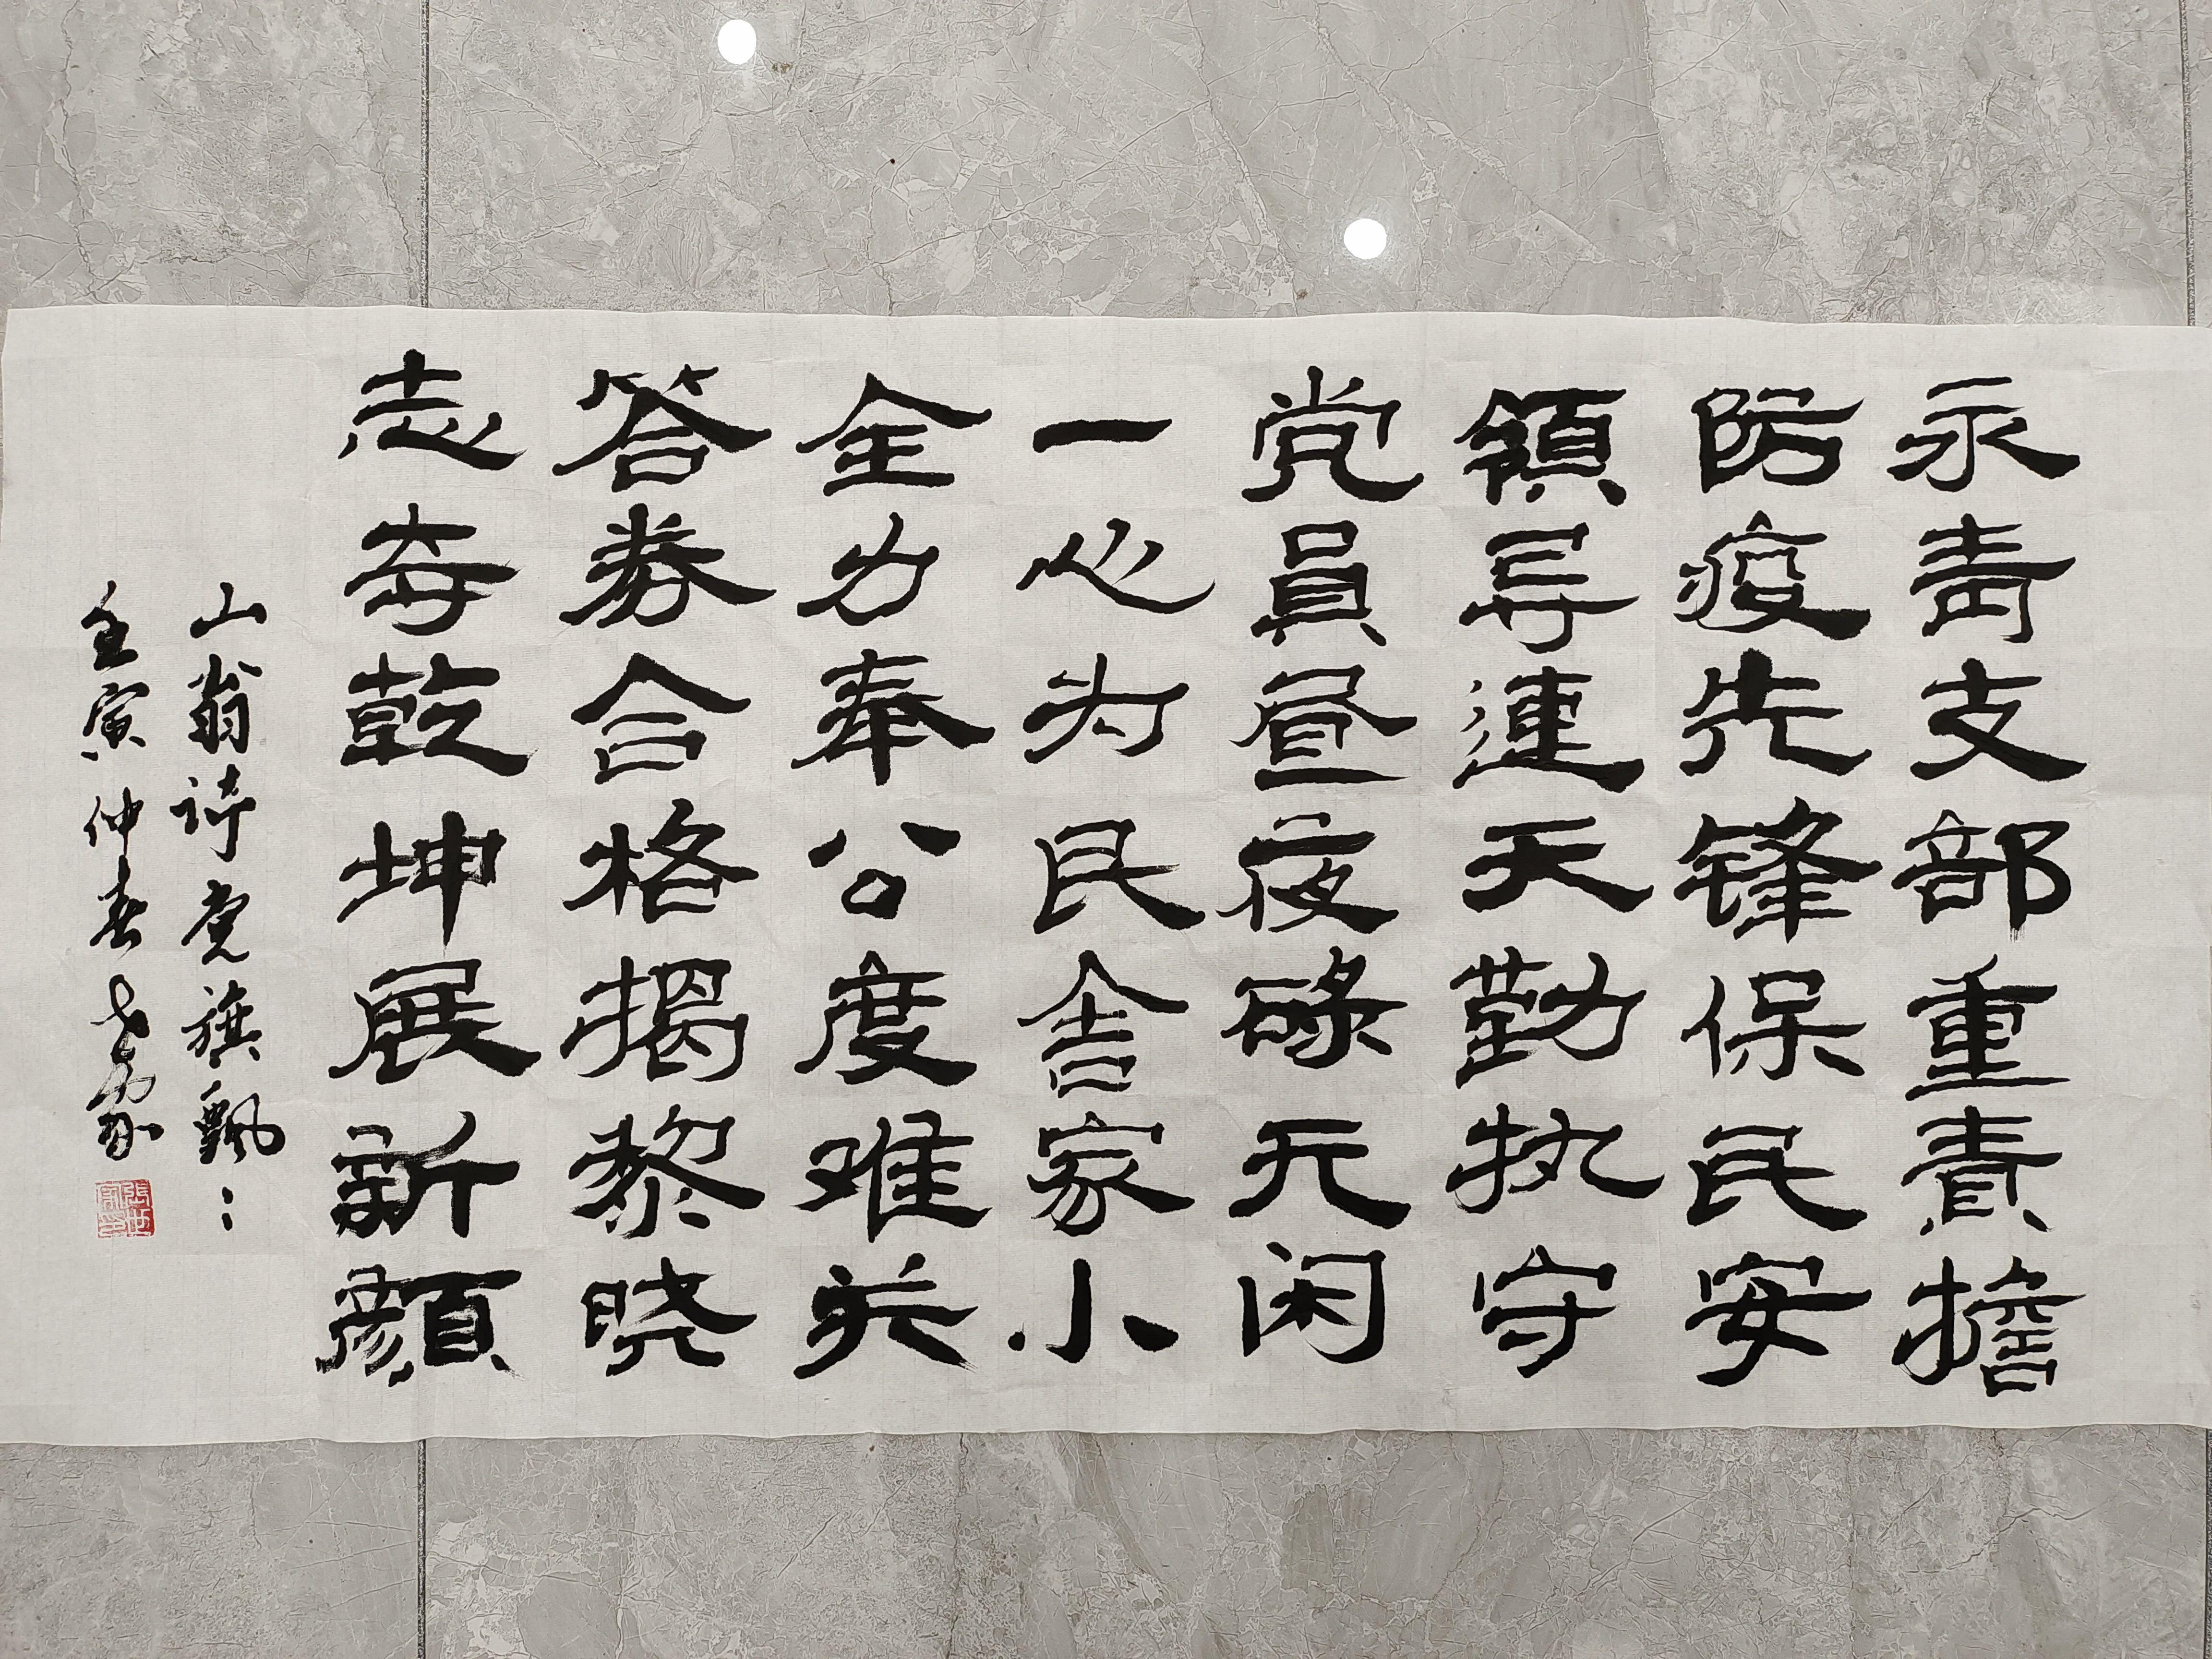 永青支部重責擔
防疫先锋保民安
領导連天勤执守
党員昼夜碌无闲
一心为民舍家小
全力奉公度难关
答券合格揭黎晓
志夺乾坤展新顔
山翁诗党旗飘：
壬寅仲春